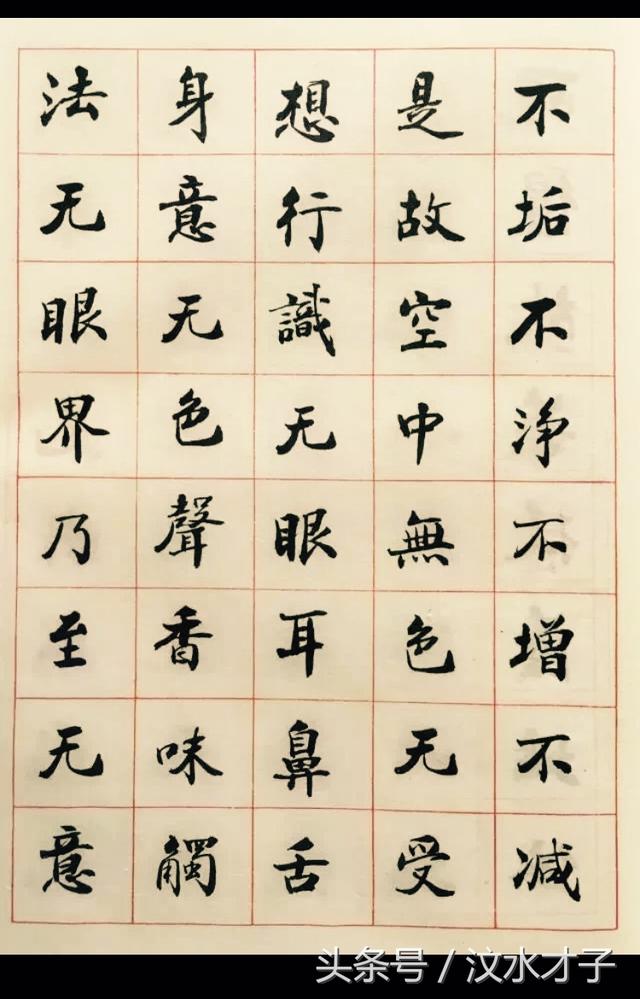 不垢不净不增不减
是故空中無色无受
想行識无眼耳鼻舌
身意无色聲香味觸
法无眼界乃至无意
头条号/汶水才子